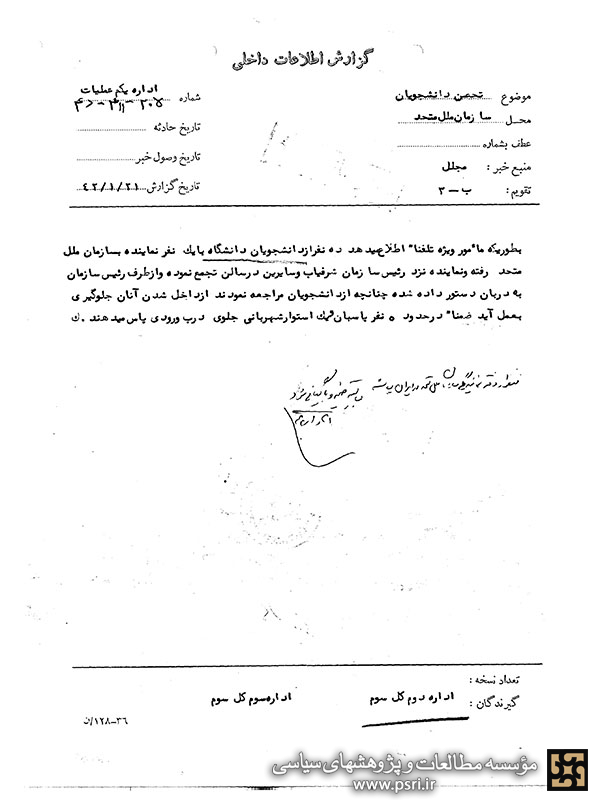 گزارش اطلاعات داخلی
موضوع تحصن دانشجویان
محل سازمان ملل متحد
عطف بشماره
منبع خبر : مجلل
تقویم : ب - ۳
اداره یکم عملیات
شماره
تاریخ حادثه
تاریخ وصول خبر
تاریخ گزارش ۴۲/۱/۲۱
بطوریکه مأمور ویژه تلفناً اطلاع میدهد ده نفر از دانشجویان دانشگاه با یک نفر نماینده بسازمان ملل
متحد رفته ونماینده نزد رئیس سازمان شرفیاب وسایرین در سالن تجمع نموده واز طرف رئیس سازمان
به دربان دستور داده شده چنانچه از دانشجویان مراجعه نمودند از داخل شدن آنان جلوگیری
بعمل آید ضمناً در حدود ۵ نفر پاسبان و یک استوار شهربانی جلوی درب ورودی پاس میدهند . ک
تعداد نسخه :
گیرندگان : اداره دوم کل سوم اداره سوم کل سوم
۱۲۸-۳۶/ن
مؤسسه مطالعات و پژوهشهای سیاسی
www.psri.ir